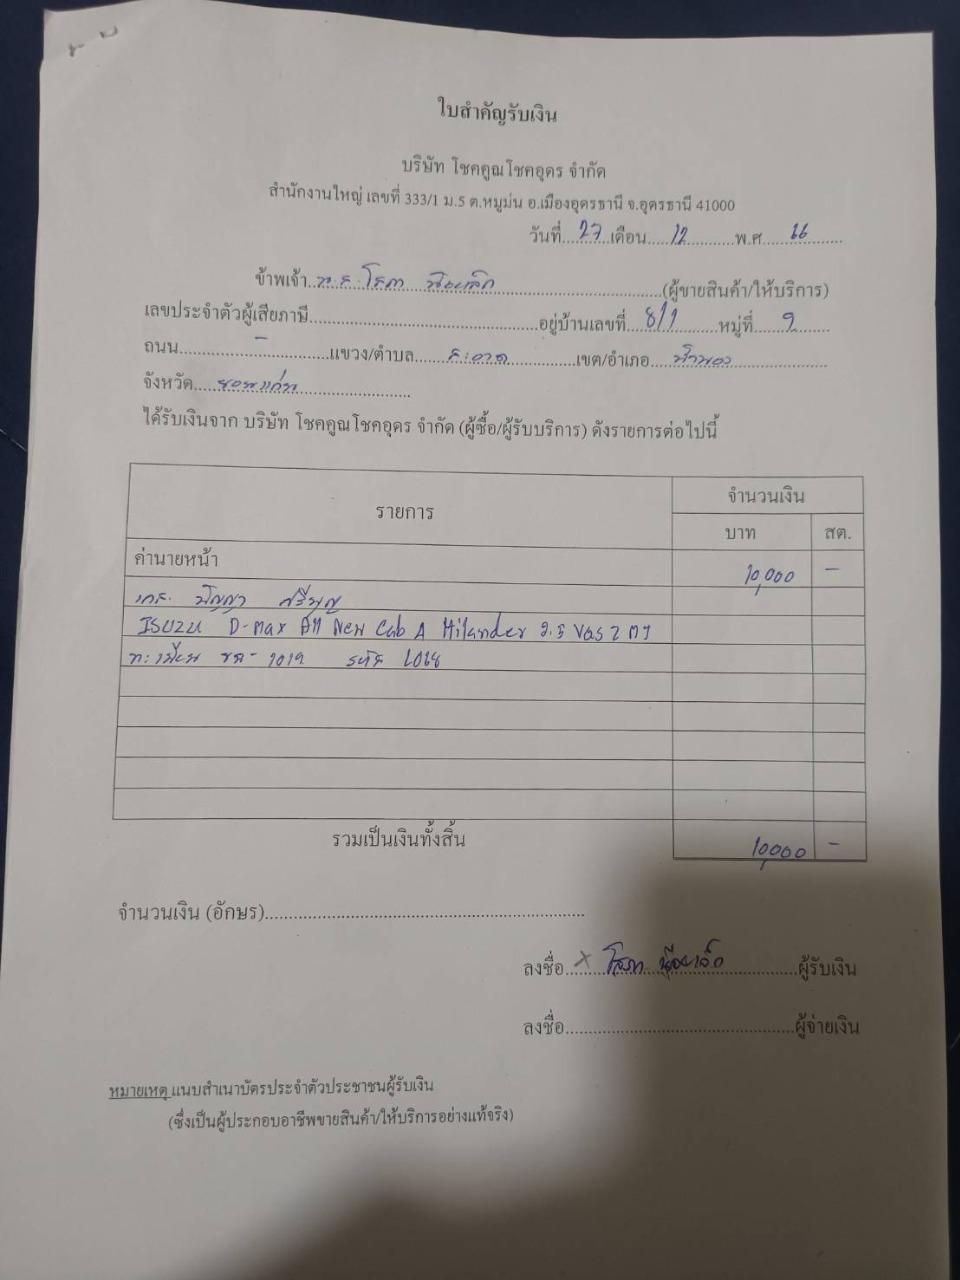 ใบสำคัญรับเงิน
บริษัท โชคคูณโชคอุดร จำกัด
สำนักงานใหญ่ เลขที่ 333/1 ม.5 ต.หมูม่น อ.เมืองอุดรธานี จ.อุดรธานี 41000
วันที่ 27 เดือน 12 พ.ศ. 66
ข้าพเจ้า (ผู้ขายสินค้า/ให้บริการ)
เลขประจำตัวผู้เสียภาษี อยู่บ้านเลขที่ 8/1 หมู่ที่ 9
ถนน - แขวง/ตำบล สะอาด เขต/อำเภอ น้ำพอง
จังหวัด ขอนแก่น
ได้รับเงินจาก บริษัท โชคคูณโชคอุดร จำกัด (ผู้ซื้อ/ผู้รับบริการ) ดังรายการต่อไปนี้
รายการ จำนวนเงิน
บาท สต.
ค่านายหน้า 10,000 -
ปัญญา
ISUZU D-max All New Cab A Hilander
ทะเบียน
รวมเป็นเงินทั้งสิ้น 10,000 -
จำนวนเงิน (อักษร)
ลงชื่อ x โสภา น้อยเล็ก ผู้รับเงิน
ลงชื่อ ผู้จ่ายเงิน
หมายเหตุ แนบสำเนาบัตรประจำตัวประชาชนผู้รับเงิน
(ซึ่งเป็นผู้ประกอบอาชีพขายสินค้า/ให้บริการอย่างแท้จริง)